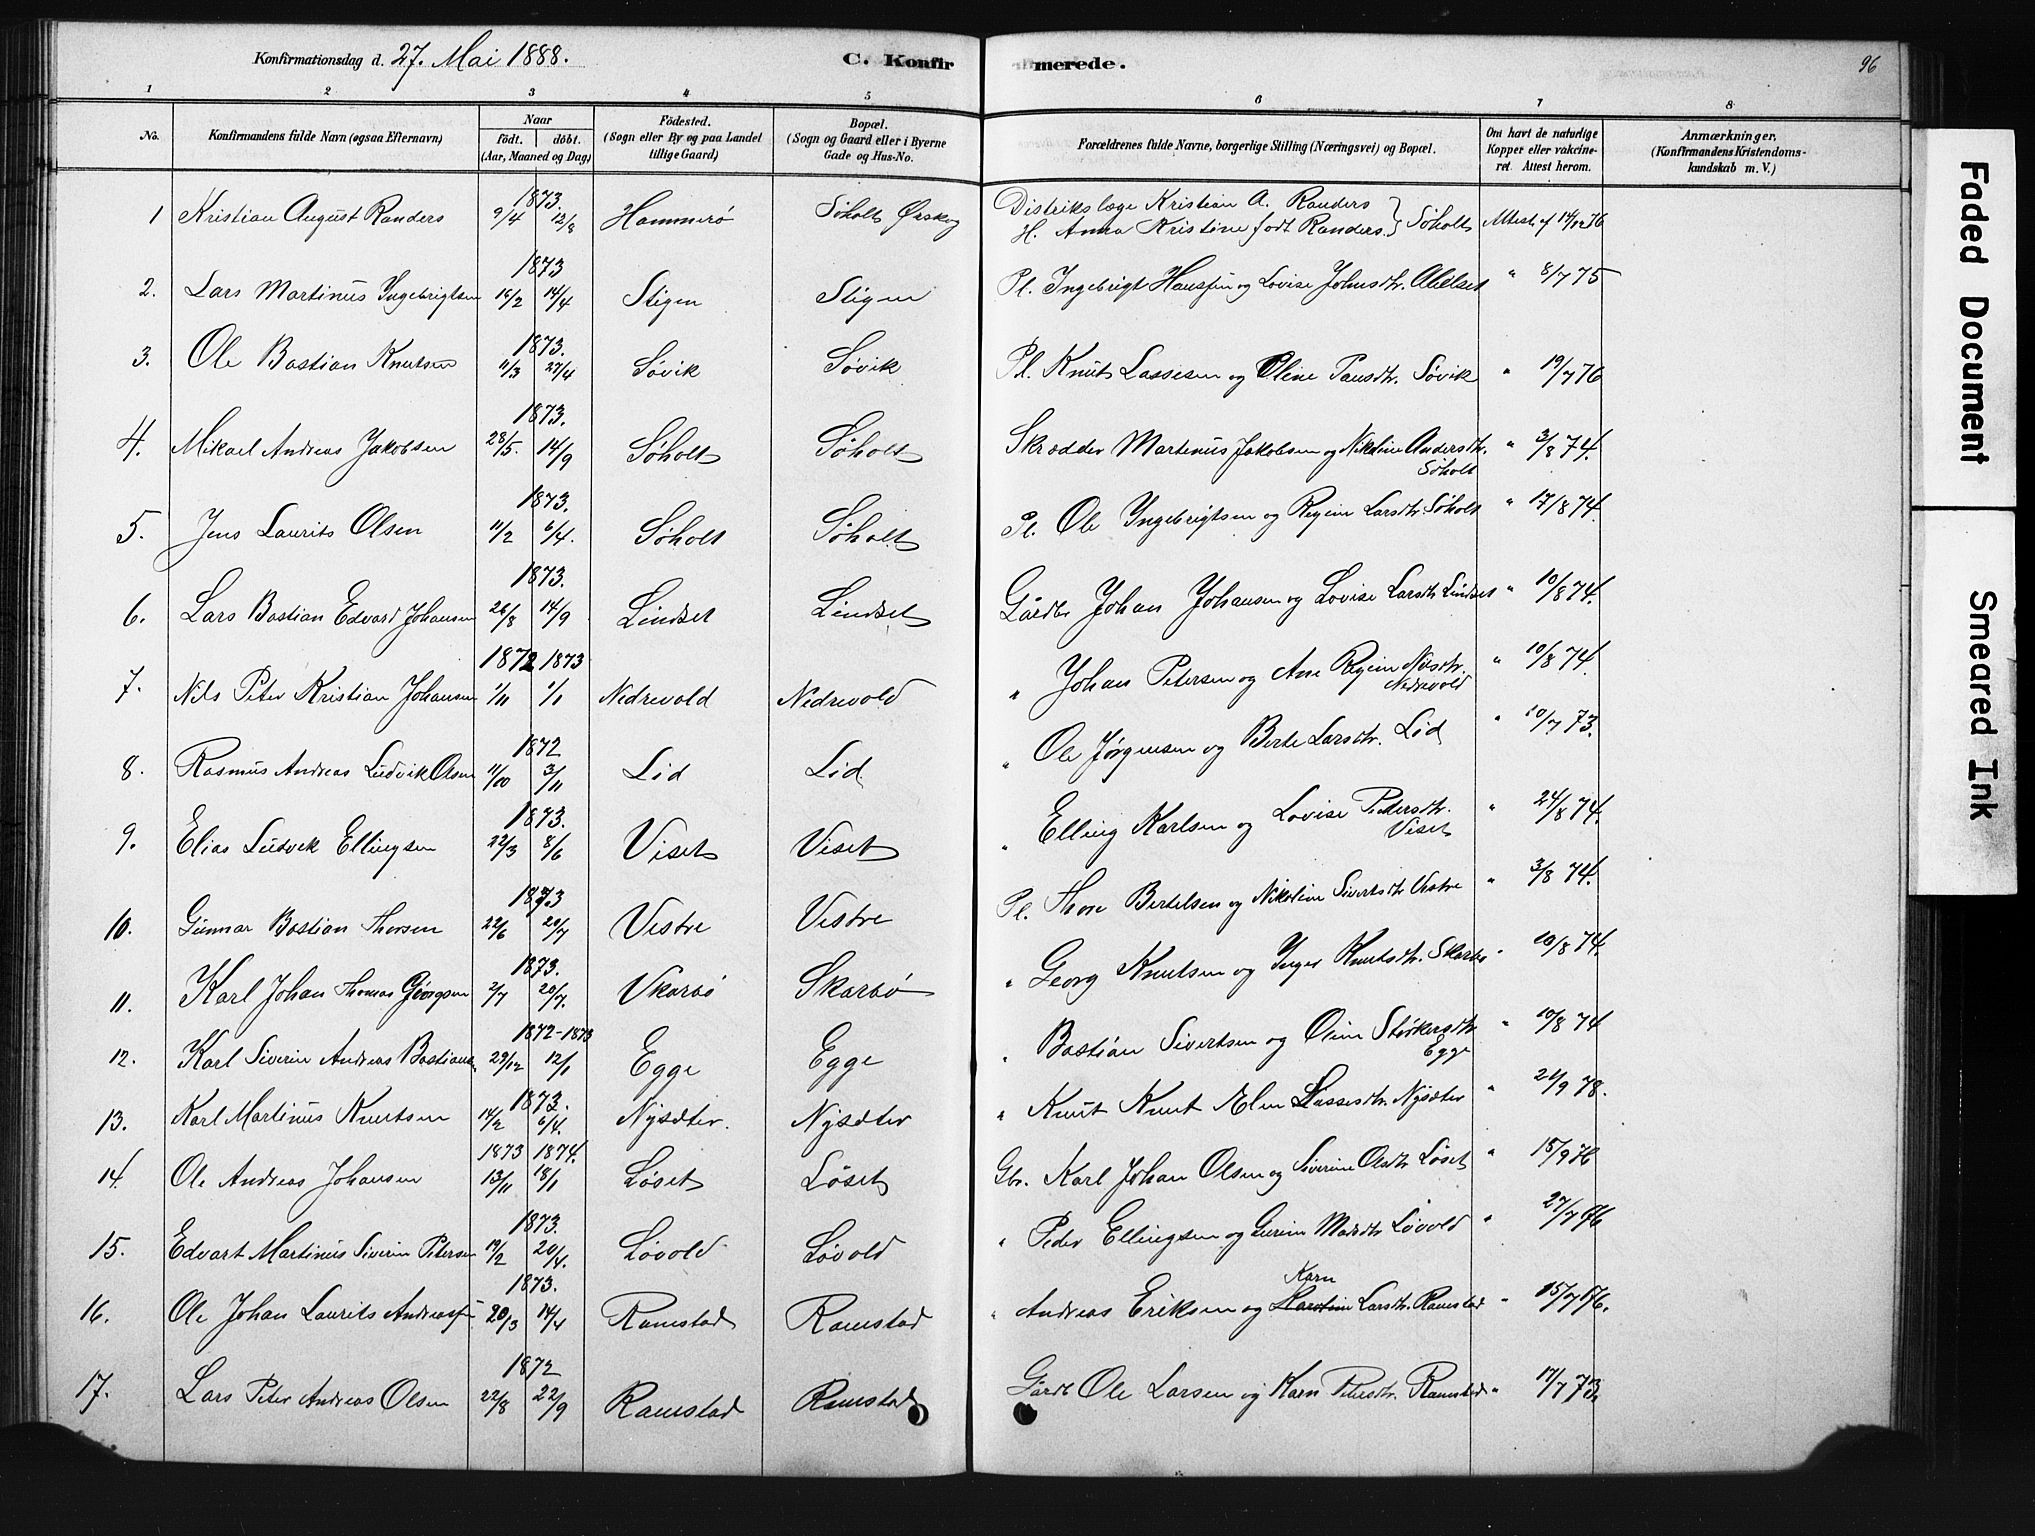 Konfirmationsdag d. 27. Mai 1888. C. Konfirmerede. 96
1 2 3 4 5 6 7 8
No. Konfirmandens fulde Navn (ogsaa Efternavn) Naar födt. döbt. (Aar, Maaned og Dag) Födested. (Sogn eller By og paa Landet tillige Gaard) Bopæl. (Sogn og Gaard eller i Byerne Gade og Hus-No. Forældrenes fulde Navne, borgerlige Stilling (Næringsvei) og Bopæl. Om havt de naturlige Kopper eller vakcineret. Attest herom. Anmærkninger. (Konfirmandens Kristendomskundskab m. V.)
1873.
1 Kristian August Randers 9/4 12/8 Hammerö Söholt Ørskog Distriktslæge Kristian A. Randers
H. Anna Kristine født Randers } Söholt Attest af 14/12 76
1873
2. Lars Martinus Ingebrigtsen 16/2 14/4 Stigen Stigen Pl. Ingebrigt Hansen og Lovise Johnsdtr. " 8/7 75
1873.
3. Ole Bastian Knutsen 11/3 27/4 Søvik Søvik Pl. Knut Lassesen og Oline Søvik " 19/7 76
1873.
4. Mikael Andreas Jakobsen 28/5. 14/9 Søholt Søholt Skrædder Martinus Jakobsen og Nikoline Andersdtr. Søholt " 3/8 74.
1873.
5. Jens Laurits Olsen 11/2 6/4. Søholt Søholt Pl. Ole Ingebrigtsen og Regine Larsdtr. Søholt " 17/8 74.
1873.
6. Lars Bastian Edvard Johansen 26/8 14/9 Lindset Lindset Gårdbr Johan Johansen og Lovise Larsdtr Lindset " 10/8 74.
1872 1873
7. Nils Peter Kristian Johansen 1/11 1/1 Nedrevold Nedrevold " Johan Petersen og Ane Regine Nedrevold " 10/8 74.
1872
8. Rasmus Andreas Ludvik Olsen 11/10 3/11 Lid Lid " Ole Jørgensen og Berte Larsdtr. Lid " 10/7 73.
1873.
9. Elias Ludvik Ellingsen 22/3 8/6 Viset Viset " Elling Karlsen og Lovise Pedersdtr. Viset " 24/8 74.
1873
10. Gunnar Bastian Thorsen 22/6 20/7 Vestre Vestre Pl. Thore Bertelsen og Nikoline Sivertsdtr Vestre " 3/8 74.
1873.
11. Karl Johan Thomas Georgsen 2/7 20/7. Skarbø Skarbø " Georg Knutsen og Inger Knutsdtr. Skarbø " 10/8 74.
1872-1873
12. Karl Siverin Andreas Bastians. 29/12 12/1 Egge Egge " Bastian Sivertsen og Størkersdtr. Egge " 10/8 74
1873.
13. Karl Martinus Knutsen 14/2 6/4. Nysæter. Nysæter " Knut Knut Elen Lassesdtr. Nysæter " 21/9 78.
1873 1874.
14. Ole Andreas Johansen 13/11 18/1 Løset Løset Gbr. Karl Johan Olsen og Siverine Olsdtr Løset " 15/9 76
1873.
15. Edvart Martinus Siverin Petersen 19/2 20/4. Løvold Løvold " Peder Ellingsen og Gurine Løvold " 27/7 76
1873.
16. Ole Johan Laurits Andreassen 20/3 14/4 Ramstad Ramstad " Andreas Eriksen og Karn Larsdtr. Ramstad " 15/7 76.
1872
17. Lars Peter Andreas Olsen 22/8 22/9 Ramstad Ramstad Gårdb Ole Larsen og Karn Petersdtr. Ramstad " 17/7 73.
Faded Document
Smeared Ink